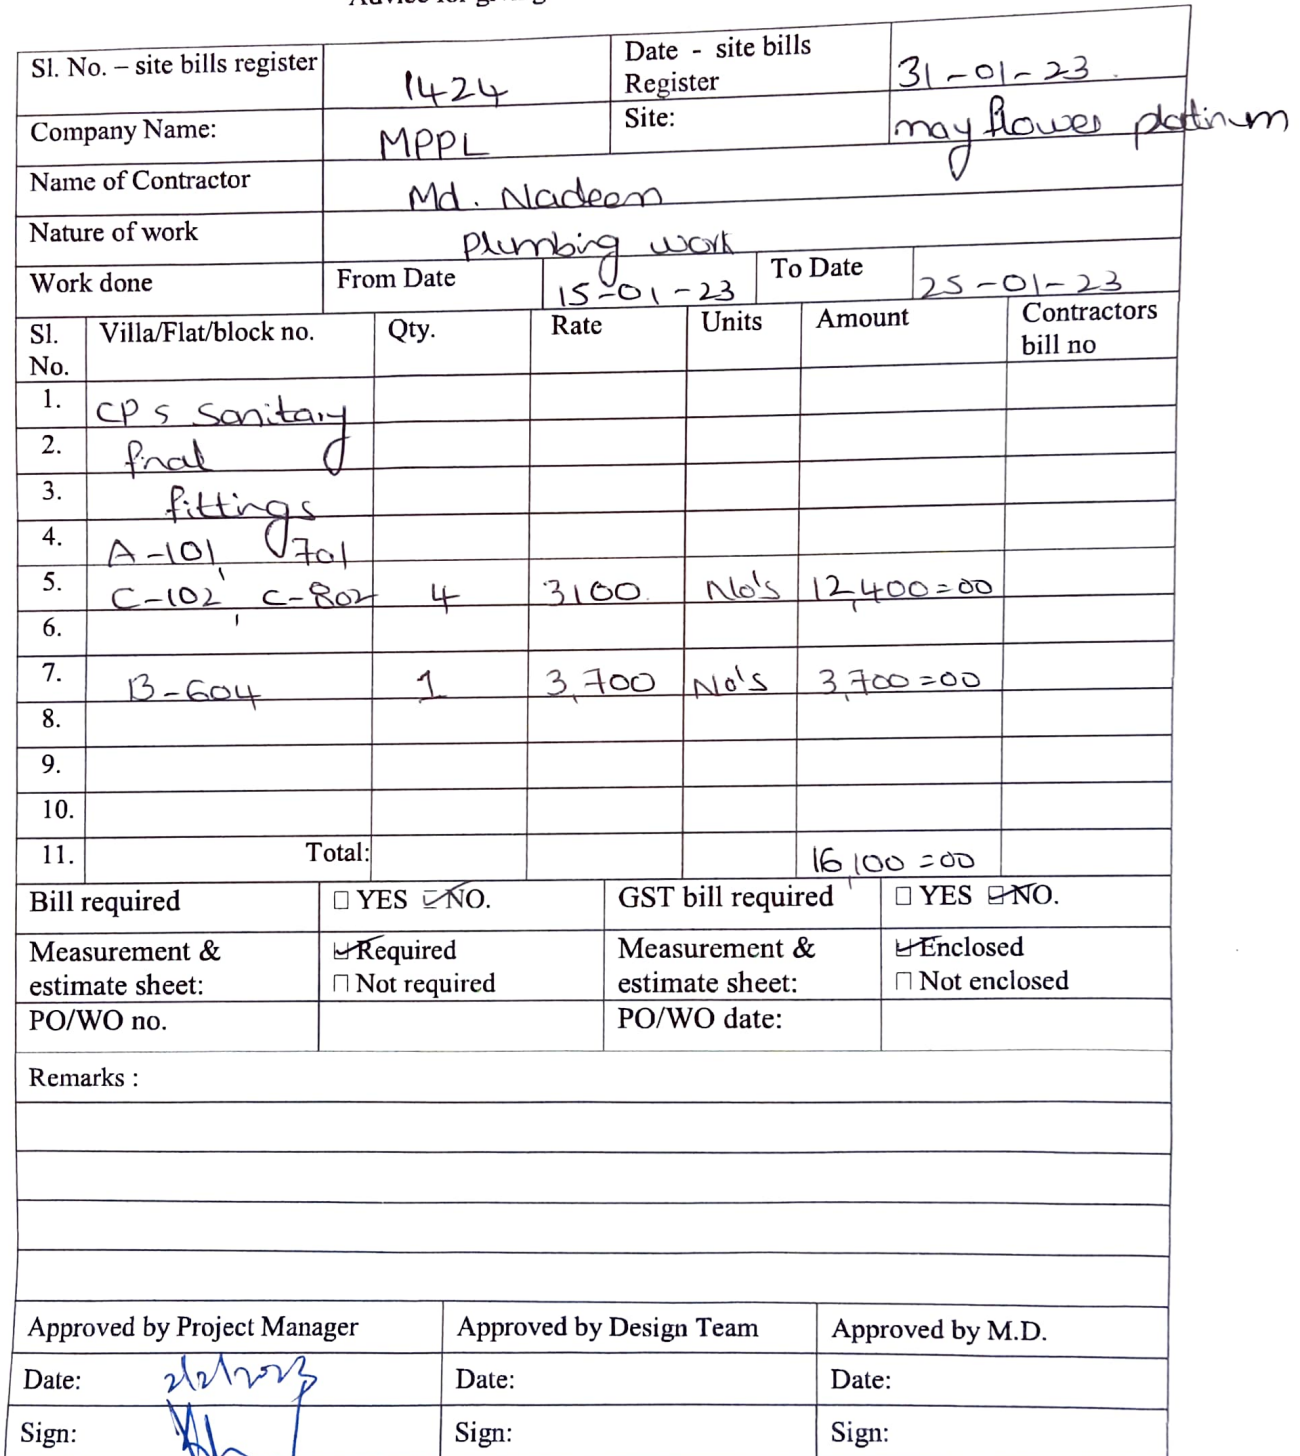 Sl. No. – site bills register 1424 Date - site bills Register 31-01-23
Company Name: MPPL Site: may flower platinum
Name of Contractor Md. Nadeem
Nature of work plumbing work
Work done From Date 15-01-23 To Date 25-01-23
Sl. No. Villa/Flat/block no. Qty. Rate Units Amount Contractors bill no
1. CP s sanitary
2. final
3. fittings
4. A-101, 701
5. C-102, C-802 4 3100 No's 12,400=00
6.
7. B-604 1 3,700 No's 3,700=00
8.
9.
10.
11. Total: 16,100=00
Bill required □ YES ☑ NO. GST bill required □ YES ☑ NO.
Measurement & estimate sheet: ☑ Required Measurement & estimate sheet: ☑ Enclosed
□ Not required □ Not enclosed
PO/WO no. PO/WO date:
Remarks :
Approved by Project Manager Approved by Design Team Approved by M.D.
Date: 2/2/2023 Date: Date:
Sign: Sign: Sign: